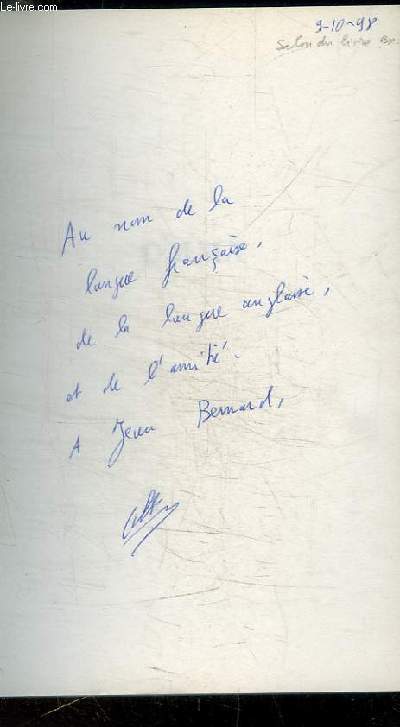 Le-livre.com
9-10-98
Salon du livre
Au nom de la
langue française,
de la langue anglaise,
et de l'amitié.
A Jean Bernard,